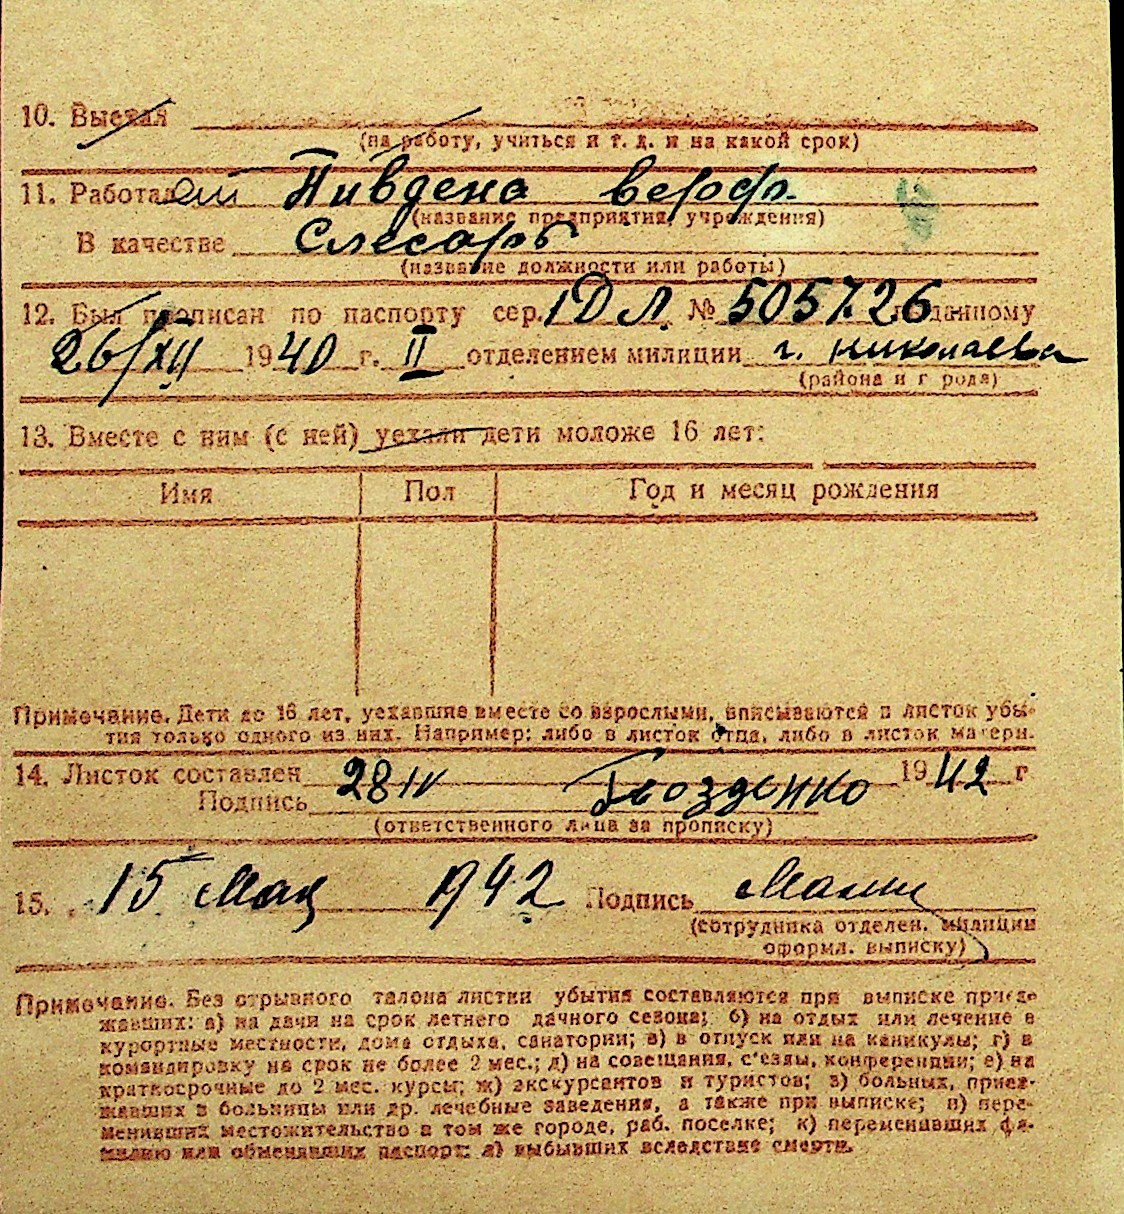 10. Выехал
(на работу, учиться и т. д. и на какой срок)
11. Работал Пивдена верф.
(название предприятия, учреждения)
В качестве Слесарь
(название должности или работы)
12. Был прописан по паспорту сер. IДЛ № 505726 выданному
26/XII 1940 г. II отделением милиции г. николаева
(района и города)
13. Вместе с ним (с ней) уехали дети моложе 16 лет:
Имя Пол Год и месяц рождения
Примечание. Дети до 16 лет, уехавшие вместе со взрослыми, вписываются в листок убы-
тия только одного из них. Например: либо в листок отца, либо в листок матери.
14. Листок составлен 28 IV 1942 г
Подпись Гвозденко
(ответственного лица за прописку)
15. 15 Мая 1942 Подпись
(сотрудника отделен. милиции
оформл. выписку)
Примечание. Без отрывного талона листки убытия составляются при выписке приез-
жавших: а) на дачи на срок летнего дачного сезона; б) на отдых или лечение в
курортные местности, дома отдыха, санатории; в) в отпуск или на каникулы; г) в
командировку на срок не более 2 мес.; д) на совещания, с'езды, конференции; е) на
краткосрочные до 2 мес. курсы; ж) экскурсантов и туристов; з) больных, приез-
жавших в больницы или др. лечебные заведения, а также при выписке; и) пере-
менивших местожительство в том же городе, раб. поселке; к) переменивших фа-
милию или обменявших паспорт; л) выбывших вследствие смерти.